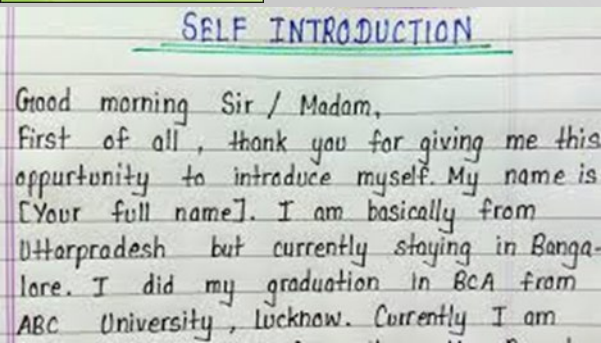 SELF INTRODUCTION
Good morning Sir / Madam,
First of all, thank you for giving me this
oppurtunity to introduce myself. My name is
[Your full name]. I am basically from
Uttarpradesh but currently staying in Banga-
lore. I did my graduation in BCA from
ABC University, Lucknow. Currently I am